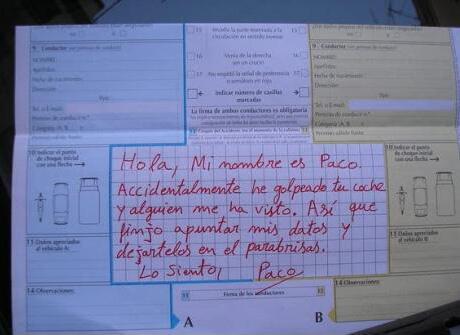 9 . Conductor
NOMBRE:
Apellidos:
Fecha de nacimiento:
Dirección:
País:
Tel. o E-mail:
Permiso de conducir n.º
Categoría (A, B, ...)
Permiso válido hasta:
10 Indicar el punto
de choque inicial
con una flecha
11 Daños apreciados
al vehículo A:
14 Observaciones:
15 Invadía la parte reservada a la 15
circulación en sentido inverso
16 Venía de la derecha 16
en un cruce
17 No respetó la señal de preferencia 17
o semáforo en rojo
Indicar número de casillas
marcadas
La firma de ambos conductores es obligatoria
Hola, Mi nombre es Paco.
Accidentalmente he golpeado tu coche
y alguien me ha visto. Así que
finjo apuntar mis datos y
dejartelos en el parabrisas.
Lo siento, Paco
15 Firma de los conductores 15
A B
9 . Conductor
NOMBRE:
Apellidos:
Fecha de nacimiento:
Dirección:
País:
Tel. o E-mail:
Permiso de conducir n.º
Categoría (A, B, ...)
Permiso válido hasta:
10 Indicar el punto
de choque inicial
con una flecha
11 Daños apreciados
al vehículo B:
14 Observaciones: